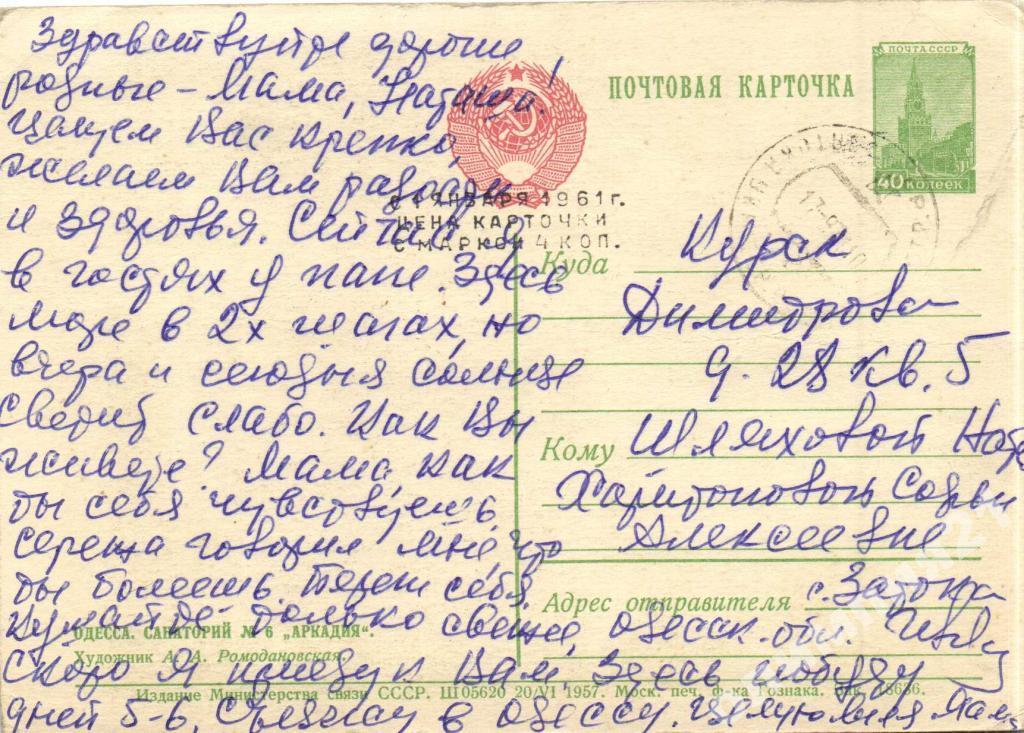 Здравствуйте дорогие
родные – Мама, Наташа!
Целуем Вас крепко,
желаем Вам радости
и здоровья. Сейчас я
в гостях у папе. Здесь
море в 2х шагах, но
вчера и сегодня солнце
светит слабо. Как Вы
живете? Мама как
ты себя чувствуешь,
Сережа говорил мне, что
ты болеешь. Береги себя.
Кушайте только свежее,
скоро я приеду к Вам, Здесь побуду
дней 5-6, съезжу в Одессу. Целую Мама
ПОЧТОВАЯ КАРТОЧКА
ПОЧТА СССР
40 КОПЕЕК
С 1 ЯНВАРЯ 1961 г.
ЦЕНА КАРТОЧКИ
С МАРКОЙ 4 КОП.
Куда Курск
Димитрова
д. 28 кв. 5
Кому Шляховой
Харитоновой Софьи
Алексеевне
Адрес отправителя с. Затока
Одесск. обл.
ОДЕССА. САНАТОРИЙ № 6 „АРКАДИЯ“.
Художник А. А. Ромодановская.
Издание Министерства связи СССР. Ш05620 20/VI 1957. Моск. печ. ф-ка Гознака. Зак. 38636.